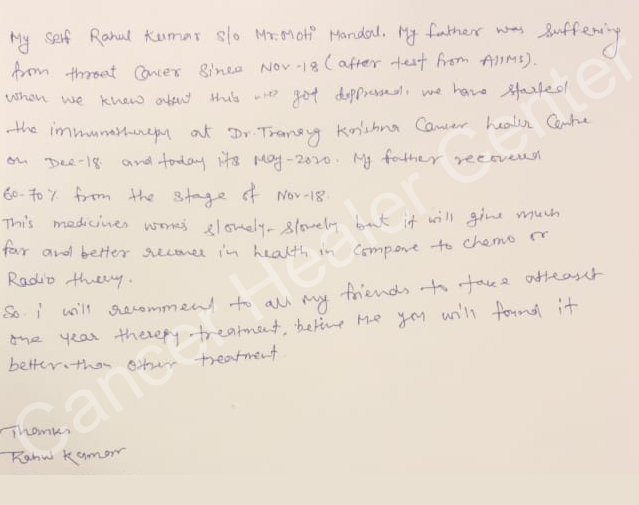 My self Rahul Kumar S/o Mr. Moti Mandal. My father was suffering
from throat Cancer Since Nov-18 (after test from AIIMS).
when we knew about this we got deppressed. we have started
the immunotherepy at Dr. Tarang Krishna Cancer healer Centre
on Dec-18 and today its May-2020. My father recovered
60-70% from the stage of Nov-18.
This medicines works slowely-slowely but it will give much
far and better recover in health in compare to chemo or
Radio therey.
So i will recommend to all my friends to take atleast
one year therepy treatment, belive me you will found it
better than other treatment
Thanks
Rahul Kumar
Cancer Healer Center